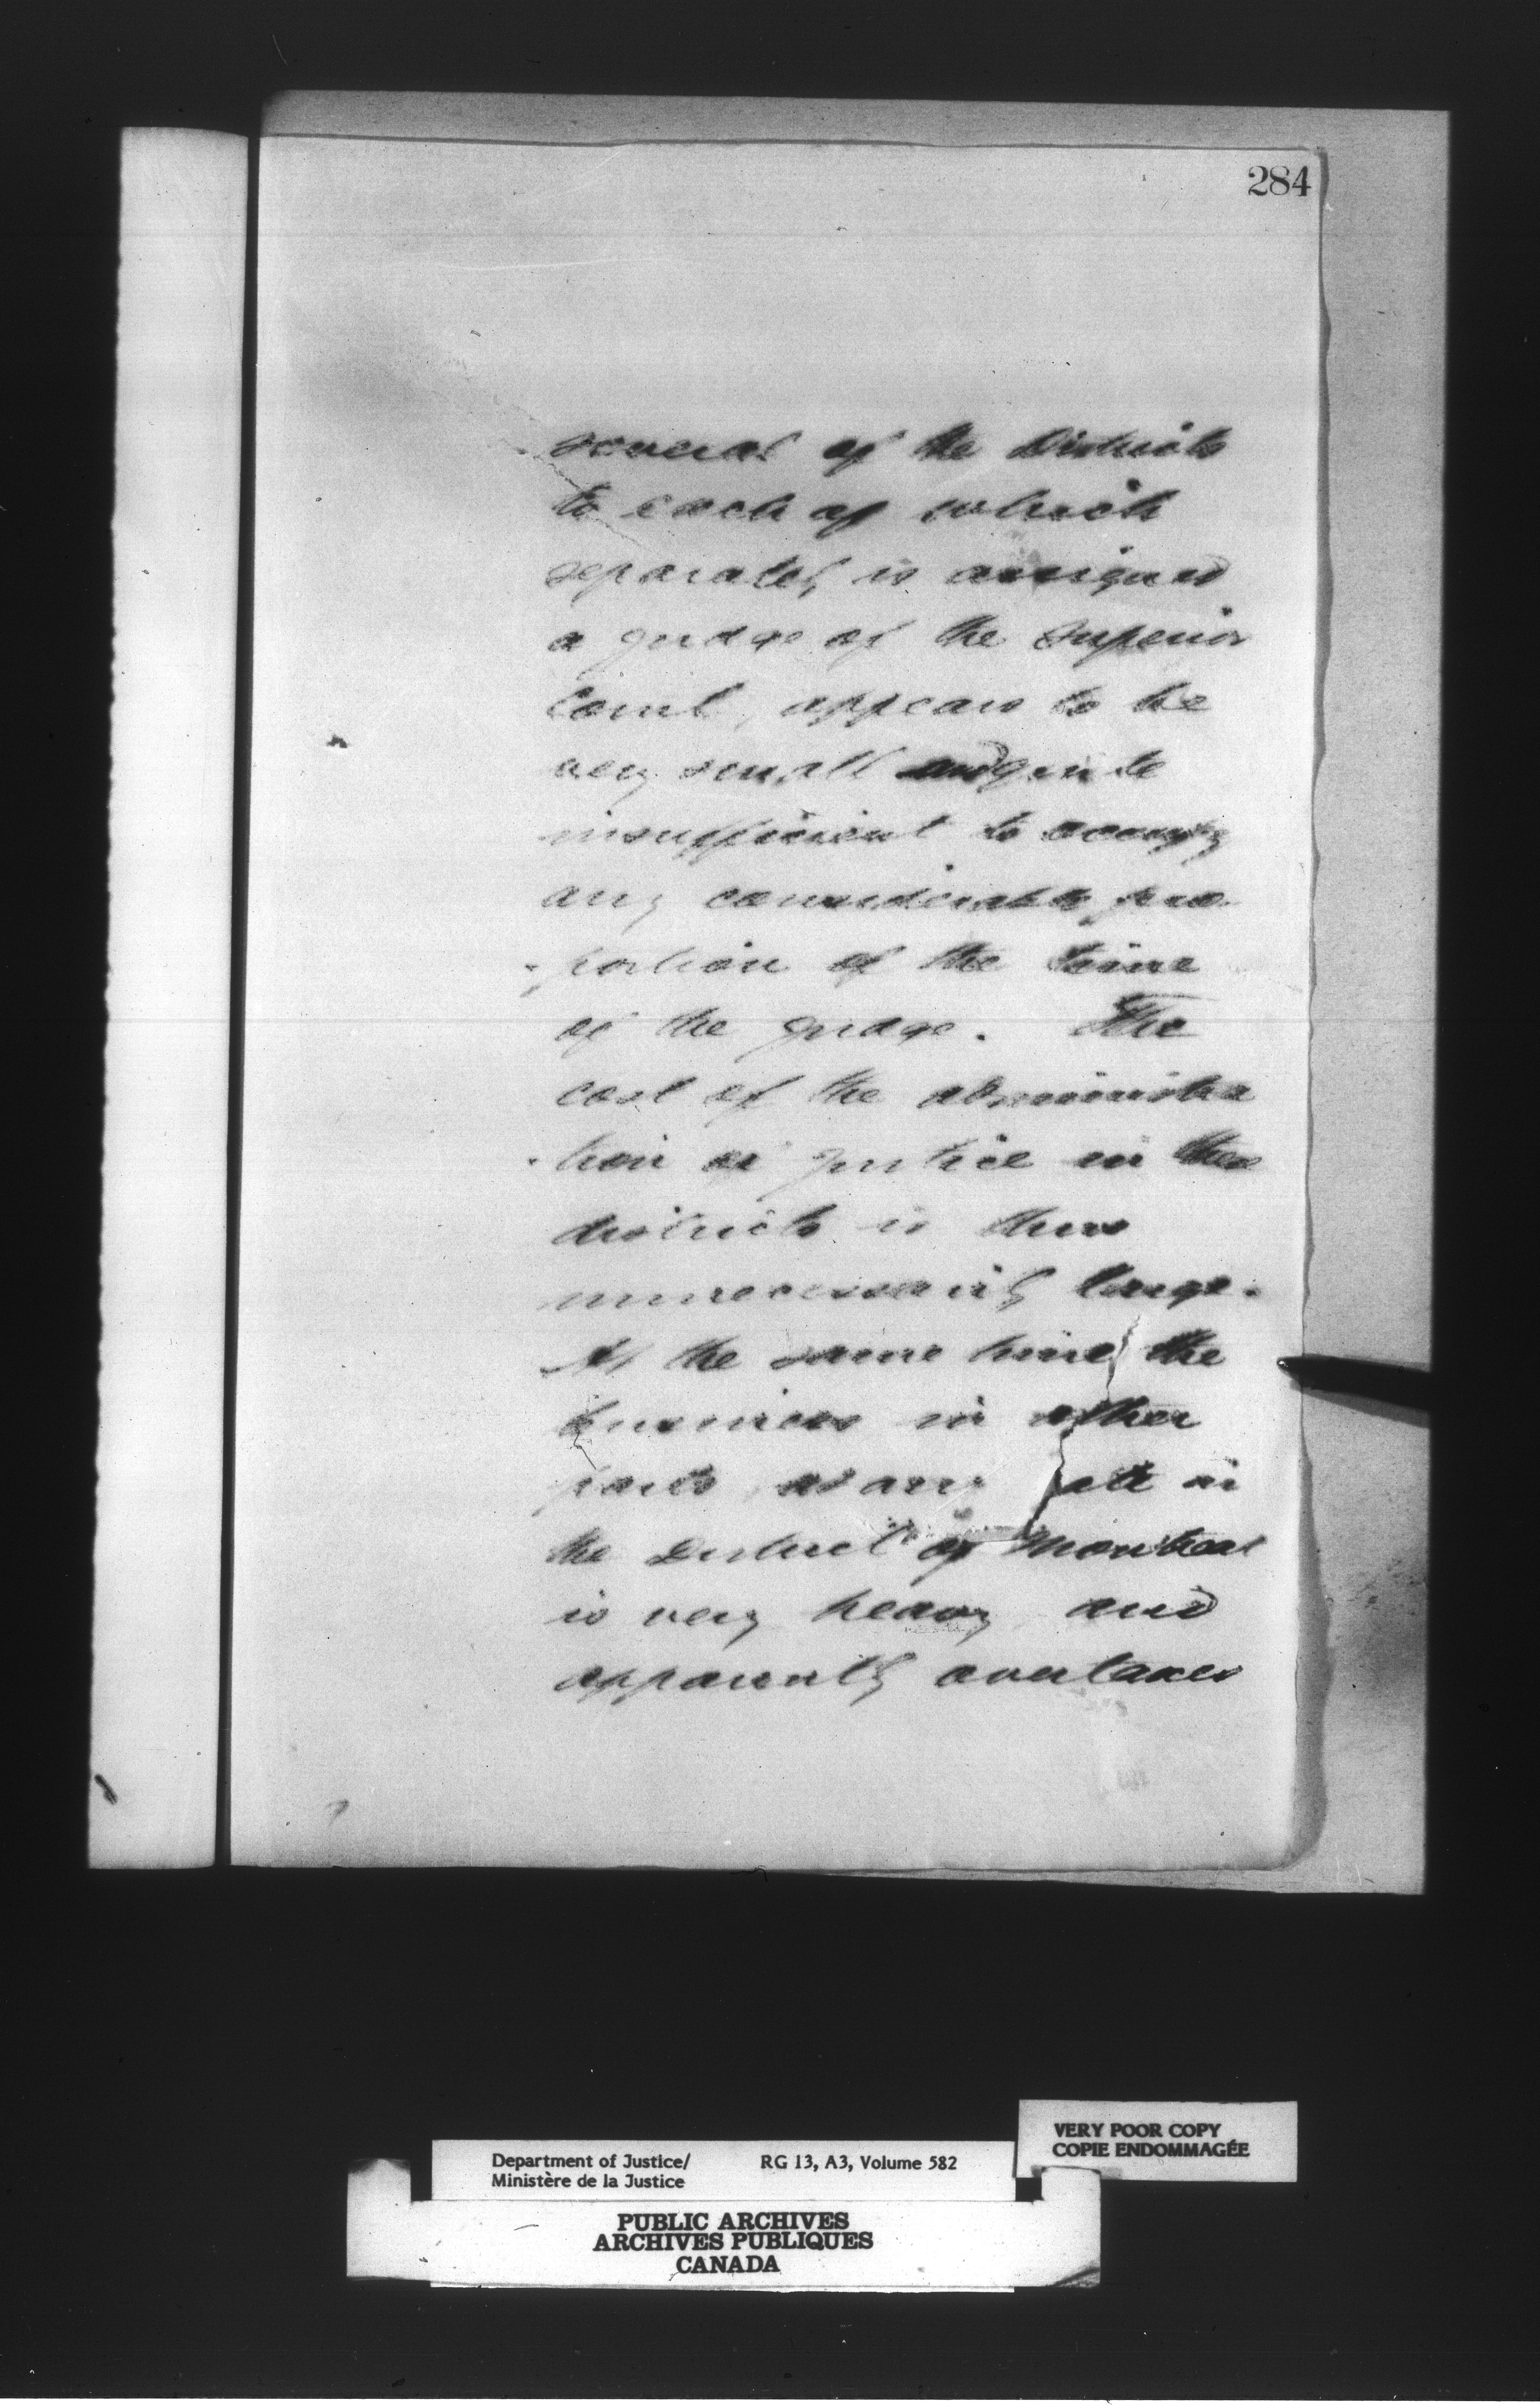 284
several of the Districts
to each of which
separately is assigned
a judge of the Superior
Court, appears to be
very small and quite
insufficient to occupy
any considerable pro
-portion of the time
of the judge. The
cost of the administra
-tion of justice in these
districts is thus
unnecessarily large.
At the same time the
business in other
parts, as
the District of Montreal
is very heavy and
apparently overtaxes
VERY POOR COPY
COPIE ENDOMMAGÉE
Department of Justice/ RG 13, A3, Volume 582
Ministère de la Justice
PUBLIC ARCHIVES
ARCHIVES PUBLIQUES
CANADA